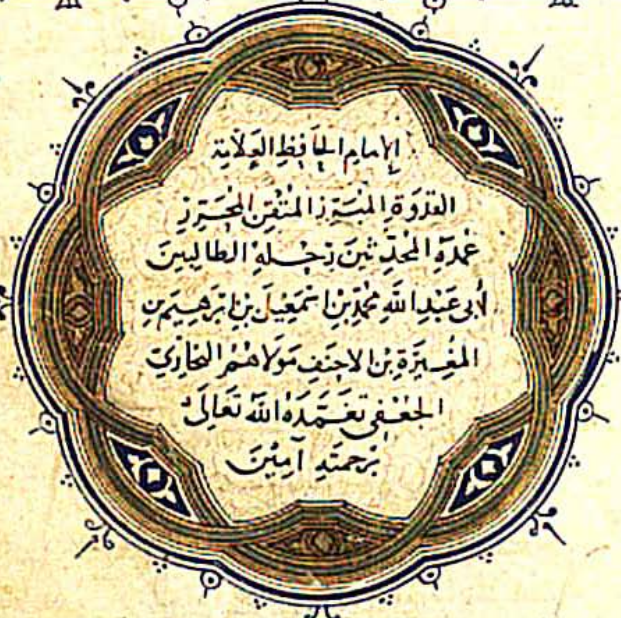 الإمام الحافظ العلامة
القدوة المبرز المتقن المحرر
عمدة المحدثين رحلة الطالبين
أبي عبد الله محمد بن اسمعيل بن ابرهيم بن
المغيرة بن الاحنف مولاهم البخاري
الجعفي تغمده الله تعالى
برحمته آمين